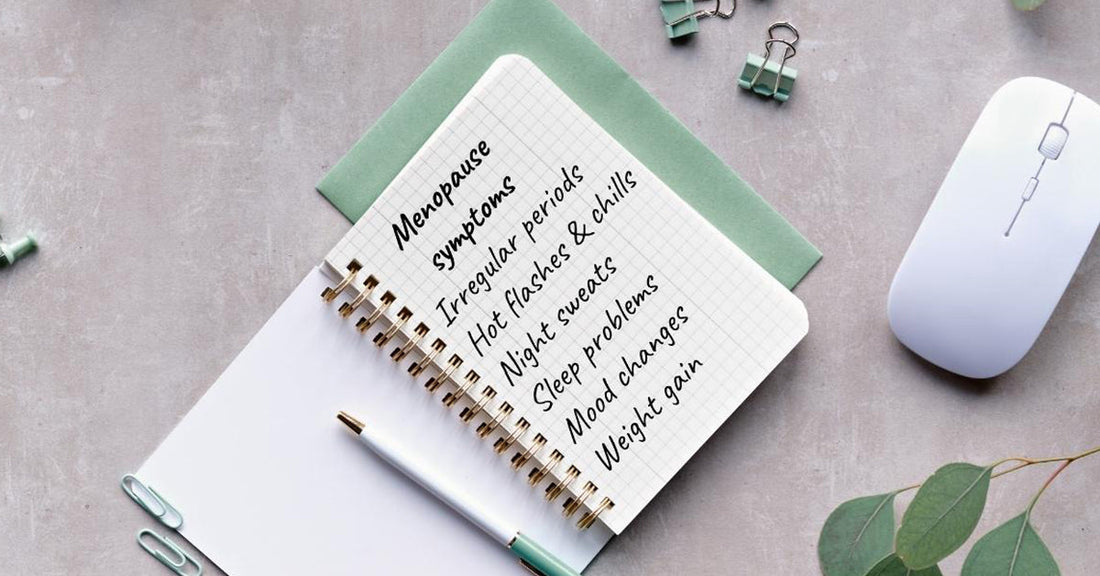 Menopause
symptoms
Irregular periods
Hot flashes & chills
Night sweats
Sleep problems
Mood changes
Weight gain